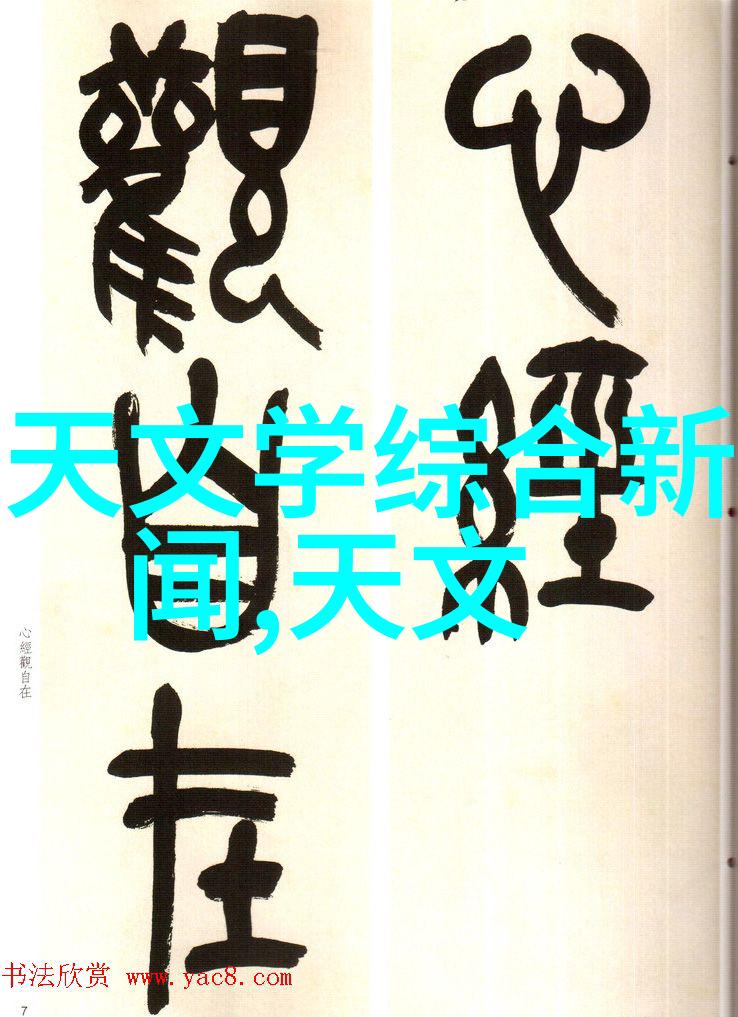 心經
觀自在
天文学综合新
闻,天文
心經觀自在
书法欣赏 www.yac8.com
7